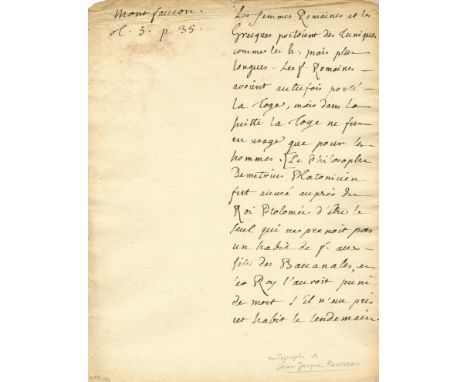 Montfaucon.
ol. 3. p. 35.
Les femmes Romaines et les
Grecques portoient des Tuniques
comme les h. mais plus
longues. Les f. Romaines
avoient autrefois porté
la Toge, mais dans la
suitte la Toge ne fut
en usage que pour les
hommes. [Le Philosophe
Demetrius Platonicien
fut accusé auprès du
Roi Ptolomée d'être le
seul qui ne prenoit pas
un habit de f. aux
fêtes des Bacanales, et
le Roy l'auroit puni
de mort s'il n'eu pris
cet habit le lendemain.
autographe de
Jean Jacques ROUSSEAU